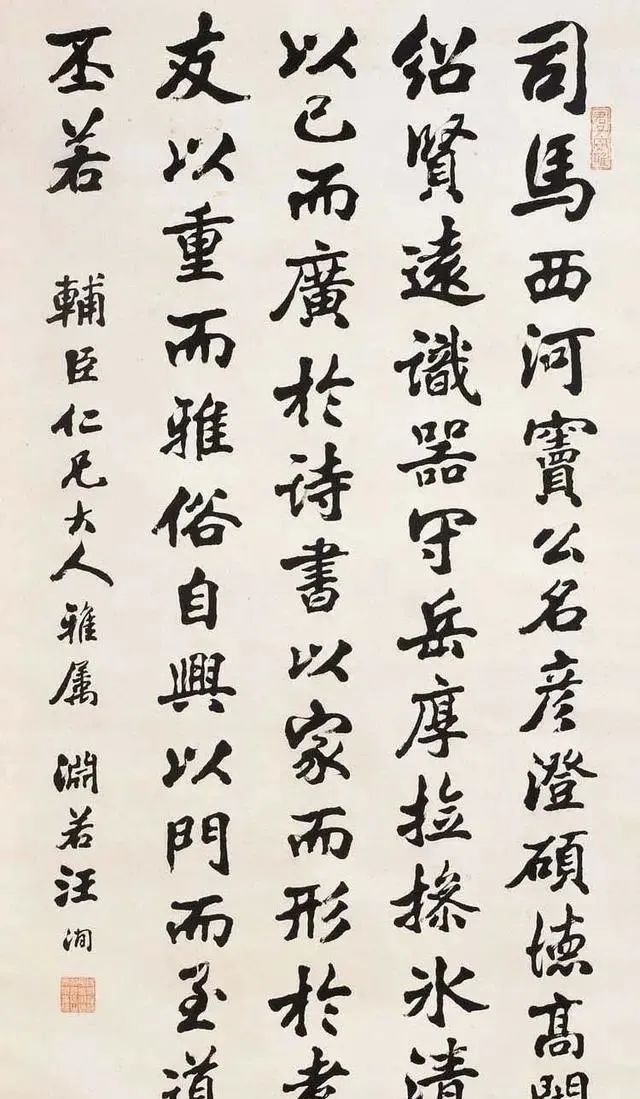 司馬西河竇公名彦澄碩德高
紹賢遠識器守岳厚撿操氷清
以已而廣於詩書以家而形於孝
友以重而雅俗自興以門而至道
丕若 輔臣仁兄大人雅属 淵若汪洵